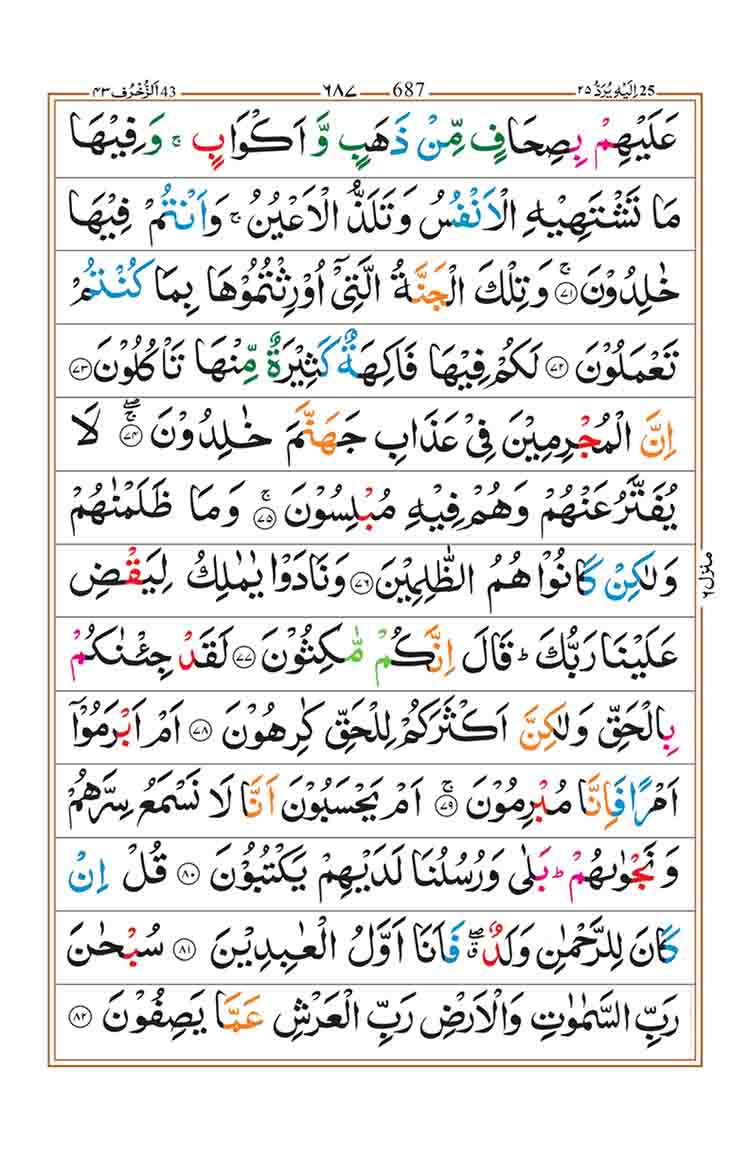 25 اِلَيْهِ يُرَدُّ ٢٥ 687 ٦٨٧ 43 اَلزُّخْرُف ٤٣
عَلَيْهِمْ بِصِحَافٍ مِّنْ ذَهَبٍ وَّ اَكْوَابٍ ۚ وَ فِيْهَا
مَا تَشْتَهِيْهِ الْاَنْفُسُ وَ تَلَذُّ الْاَعْيُنُ ۚ وَ اَنْتُمْ فِيْهَا
خٰلِدُوْنَ ۚ﴿۷۱﴾ وَ تِلْكَ الْجَنَّةُ الَّتِیْۤ اُوْرِثْتُمُوْهَا بِمَا كُنْتُمْ
تَعْمَلُوْنَ ﴿۷۲﴾ لَكُمْ فِيْهَا فَاكِهَةٌ كَثِيْرَةٌ مِّنْهَا تَاْكُلُوْنَ ﴿۷۳﴾
اِنَّ الْمُجْرِمِيْنَ فِیْ عَذَابِ جَهَنَّمَ خٰلِدُوْنَ ۚۖ﴿۷۴﴾ لَا
يُفَتَّرُ عَنْهُمْ وَهُمْ فِيْهِ مُبْلِسُوْنَ ۚ﴿۷۵﴾ وَ مَا ظَلَمْنٰهُمْ
وَلٰكِنْ كَانُوْا هُمُ الظّٰلِمِيْنَ ﴿۷۶﴾ وَ نَادَوْا يٰمٰلِكُ لِيَقْضِ
عَلَيْنَا رَبُّكَ ؕ قَالَ اِنَّكُمْ مّٰكِثُوْنَ ﴿۷۷﴾ لَقَدْ جِئْنٰكُمْ
بِالْحَقِّ وَلٰكِنَّ اَكْثَرَكُمْ لِلْحَقِّ كٰرِهُوْنَ ﴿۷۸﴾ اَمْ اَبْرَمُوْۤا
اَمْرًا فَاِنَّا مُبْرِمُوْنَ ۚ﴿۷۹﴾ اَمْ يَحْسَبُوْنَ اَنَّا لَا نَسْمَعُ سِرَّهُمْ
وَ نَجْوٰىهُمْ ؕ بَلٰى وَرُسُلُنَا لَدَيْهِمْ يَكْتُبُوْنَ ﴿۸۰﴾ قُلْ اِنْ
كَانَ لِلرَّحْمٰنِ وَلَدٌ ۖۗ فَاَنَا اَوَّلُ الْعٰبِدِيْنَ ﴿۸۱﴾ سُبْحٰنَ
رَبِّ السَّمٰوٰتِ وَالْاَرْضِ رَبِّ الْعَرْشِ عَمَّا يَصِفُوْنَ ﴿۸۲﴾
منزل ٦